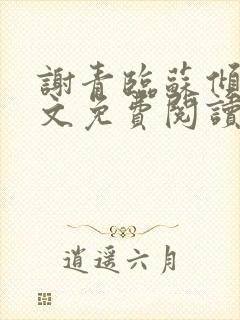 謝青臨蘇傾
文免費閱讀
逍遥六月